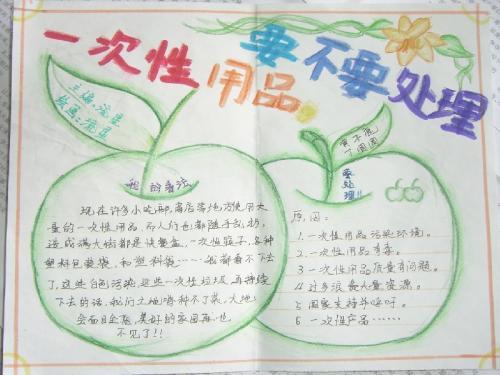 一次性用品,要不要处理
主编:流星
绘画:流星
我的看法
现在许多小吃部,商店等地方使用大
量的一次性用品,而人们也都随手乱扔,
造成满大街都是快餐盒,一次性筷子,各种
塑料包装袋,和塑料袋……我都看不下去
了,这些白色污染,这些一次性垃圾,再持续
下去的话,我们土地
会面目全非,美好的家园再也
不见了!!
要处理!!
原因:
1.一次性用品污染环境。
2.一次性用品有毒。
3.一次性用品质量有问题。
4.过多浪费大量资源。
5.国家支持
6.一次性产品……